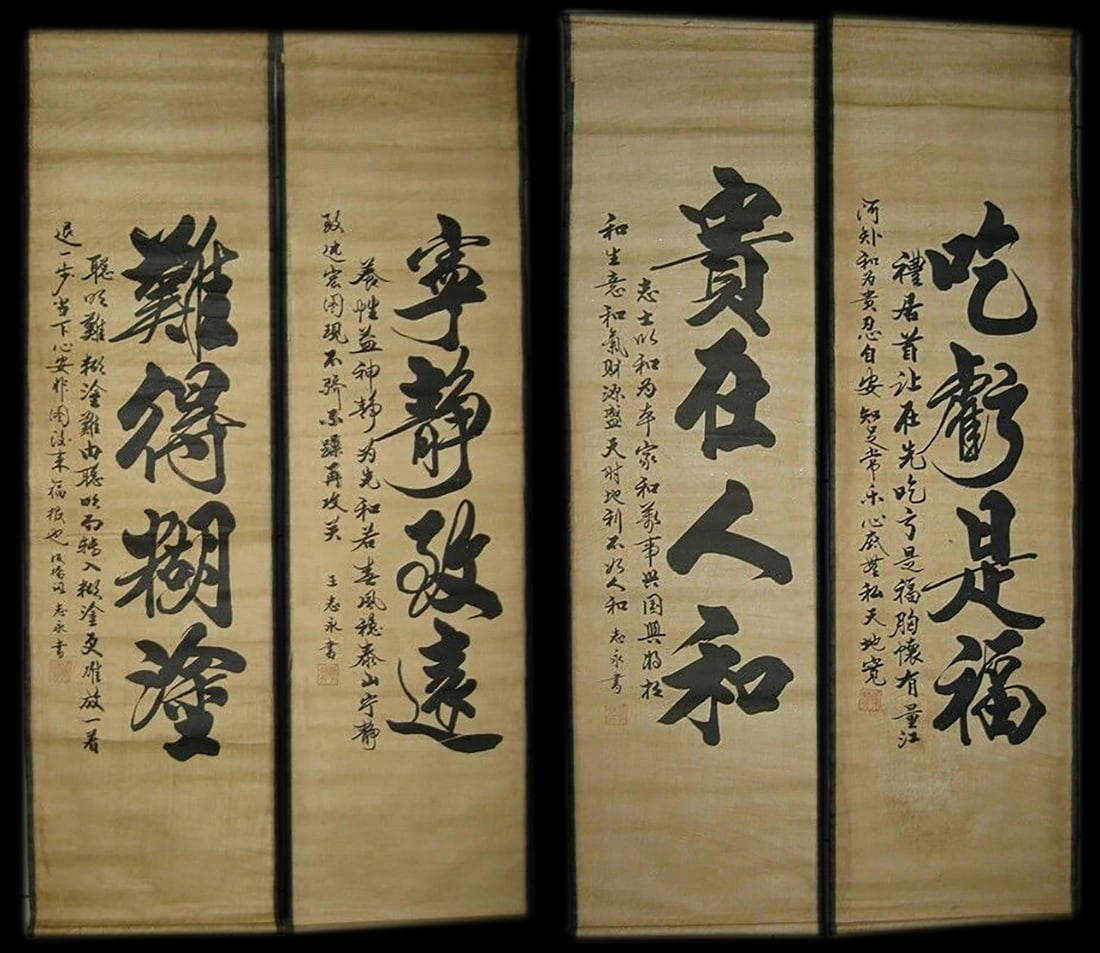 吃虧是福
禮居首让在先吃亏是福胸懷有量江
河和为贵忍自安知足常乐心底無私天地寬
貴在人和
志士以和为本家和萬事興国興将相
和生意和氣财源盛天时地利不如人和 志永書
寧靜致遠
養性益神静为先和若春风穩泰山宁静
致远宏图现不骄不躁再攻关 王志永書
難得糊塗
聪明難糊塗難由聪明而转入糊塗更难放一着
退一步当下心安非图后来福报也 板橋词 志永書